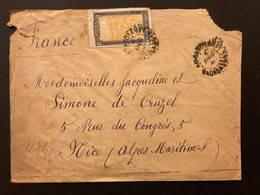 France
Mesdemoiselles Jacqueline et
Simone de Cruzel
5 Rue du Congrès, 5
Nice (Alpes Maritimes)